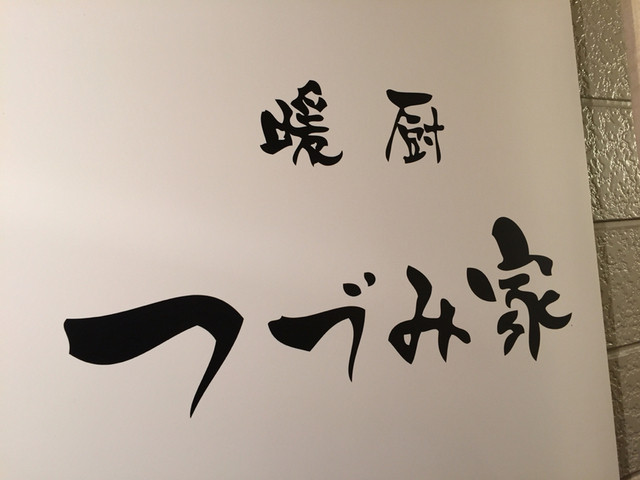 暖厨
つづみ家